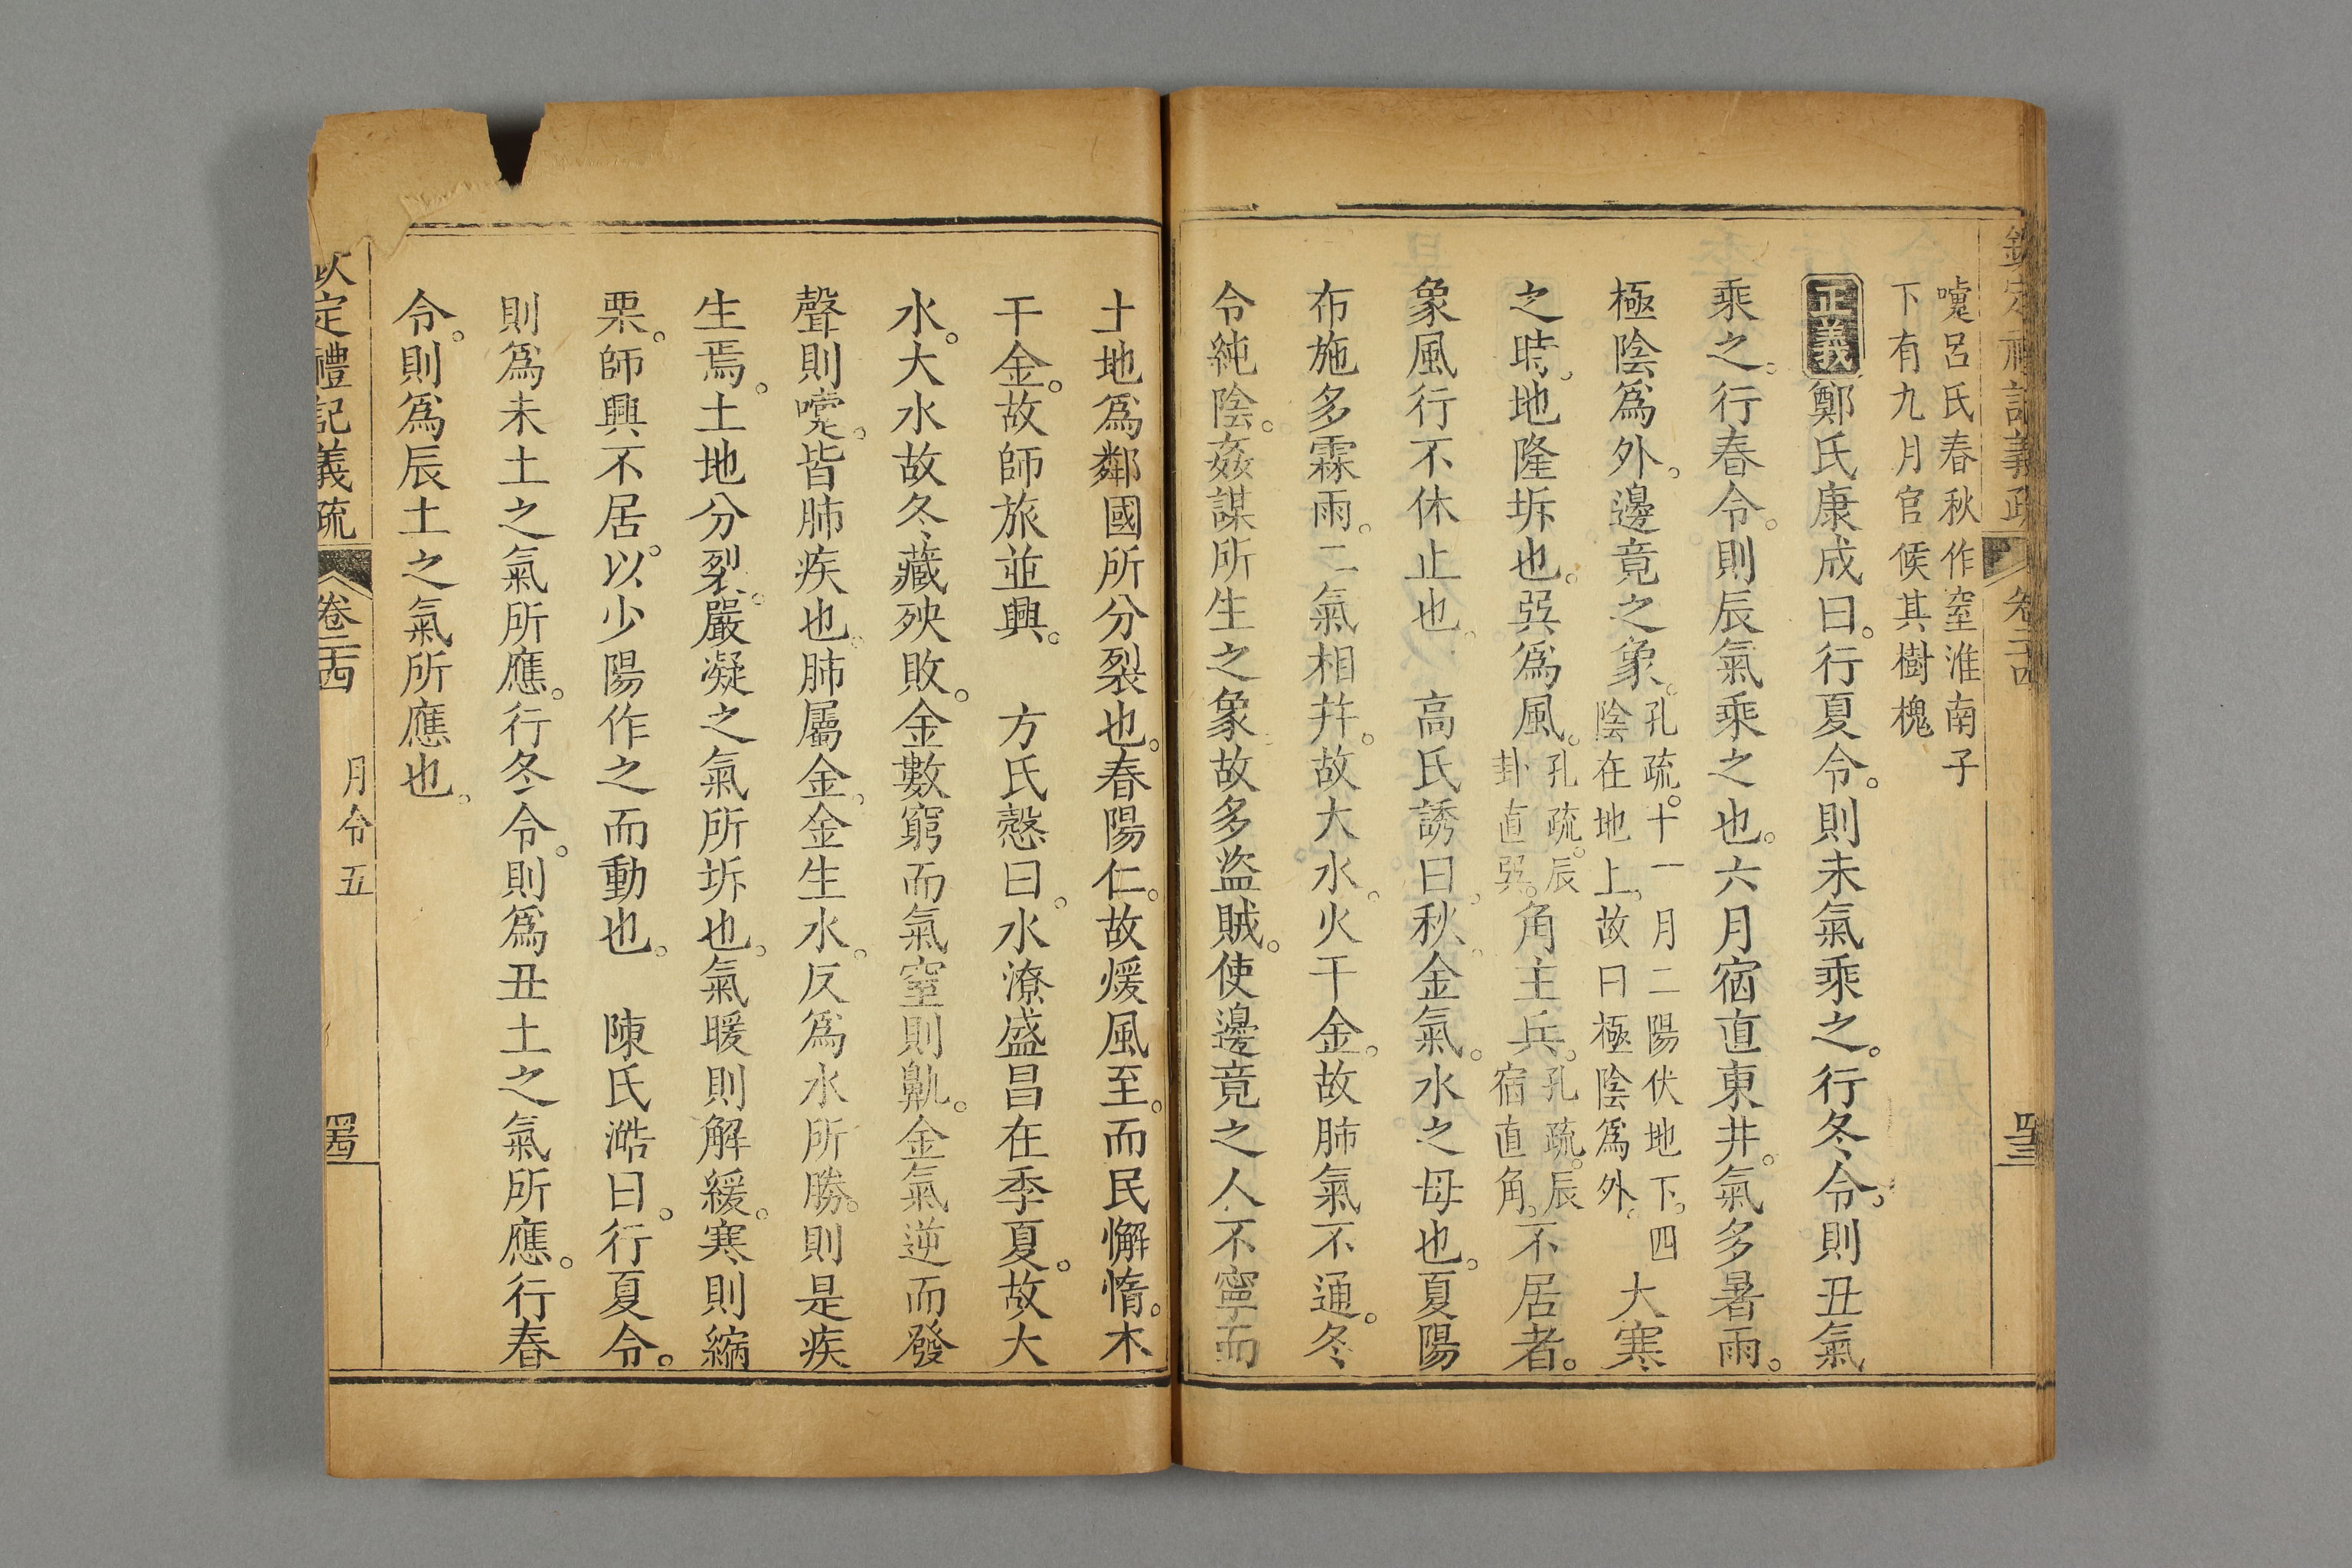 欽定禮記義疏 卷二十四
嚏呂氏春秋作窒淮南子
下有九月官候其樹槐
正義鄭氏康成曰。行夏令。則未氣乘之。行冬令。則丑氣
乘之。行春令。則辰氣乘之也。六月宿直東井。氣多暑雨。
極陰爲外。邊竟之象。孔疏。十一月二陽伏地下。四陰在地上。故曰極陰爲外。大寒
之時。地隆坼也。巽爲風。孔疏。辰卦直巽。角主兵。孔疏。辰宿直角。不居者。
象風行不休止也。 高氏誘曰。秋。金氣。水之母也。夏陽
布施多霖雨。二氣相幷。故大水。火干金。故肺氣不通。冬
令純陰。姦謀所生之象故多盜賊。使邊竟之人不寧而
土地爲鄰國所分裂也。春陽仁。故煖風至。而民懈惰。木
干金。故師旅並興。 方氏慤曰。水潦盛昌在季夏。故大
水。大水故冬藏殃敗。金數窮而氣窒則鼽。金氣逆而發
聲則嚏。皆肺疾也。肺屬金。金生水。反爲水所勝。則是疾
生焉。土地分裂。嚴凝之氣所坼也。氣暖則解緩。寒則縮
栗。師興不居。以少陽作之而動也。 陳氏澔曰。行夏令。
則爲未土之氣所應。行冬令。則爲丑土之氣所應。行春
令。則爲辰土之氣所應也。
定禮記義疏 卷二十四 月令五